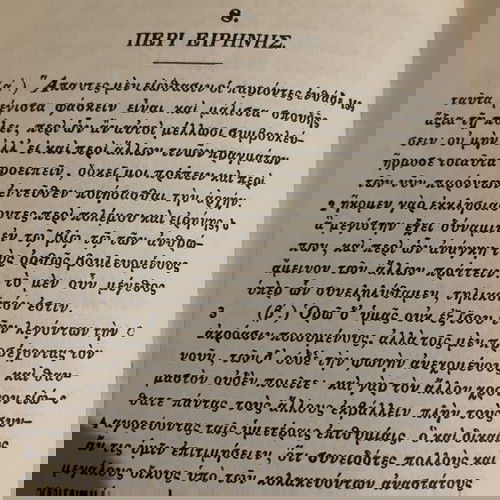 ΠΕΡΙ ΕΙΡΗΝΗΣ.
(α΄.) Ἅπαντες μὲν εἰώθασιν οἱ παριόντες ἐνθάδε
ταῦτα
μέγιστα φάσκειν εἶναι καὶ μάλιστα σπουδῆς
ἄξια τῇ πόλει, περὶ ὧν ἂν αὐτοὶ μέλλωσι συμβουλεύ-
σειν· οὐ μὴν
ἀλλ' εἰ καὶ περὶ ἄλλων τινῶν πραγμάτων
ἥρμοσε τοιαῦτα
προειπεῖν, δοκεῖ μοι πρέπειν καὶ περὶ
τῶν νῦν παρόντων
ἐντεῦθεν ποιήσασθαι τὴν ἀρχήν.
ἥκομεν γὰρ ἐκκλησιάσ
οντες περὶ πολέμου καὶ εἰρήνης,
ἃ μεγίστην ἔχει δύναμιν
ἐν τῷ βίῳ τῷ τῶν ἀνθρώ-
πων, καὶ περὶ ὧν ἀνάγκη τ
οὺς ὀρθῶς βουλευομένους
ἄμεινον τῶν ἄλλων πράττειν.
τὸ μὲν οὖν μέγεθος
ὑπὲρ ὧν συνεληλύθαμεν, τηλικοῦ
τόν ἐστιν.
(β΄.) Ὁρῶ δ' ὑμᾶς οὐκ ἐξ ἴσου
τῶν λεγόντων τὴν
ἀκρόασιν ποιουμένους, ἀλλὰ τοῖς μὲν π
ροσέχοντας τὸν
νοῦν, τῶν δ' οὐδὲ τὴν φωνὴν ἀνεχομένους.
καὶ θαυ-
μαστὸν οὐδὲν ποιεῖτε· καὶ γὰρ τὸν ἄλλον χρό
νον εἰώ-
θατε πάντας τοὺς ἄλλους ἐκβάλλειν πλὴν τοὺς
συν-
αγορεύοντας ταῖς ὑμετέραις ἐπιθυμίαις. ὃ καὶ δικαί
ως
ἄν τις ὑμῖν ἐπιτιμήσειεν, ὅτι συνειδότες πολλοὺς καὶ
μεγάλους οἴκους ὑπὸ τῶν κολακευόντων ἀναστάτους